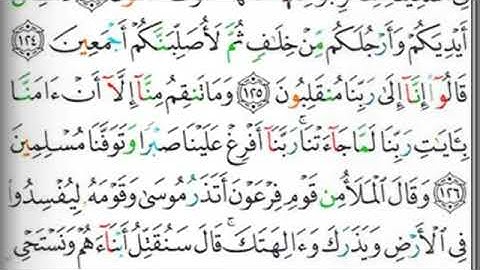 أَيْدِيَكُمْ وَأَرْجُلَكُم مِّنْ خِلَافٍ ثُمَّ لَأُصَلِّبَنَّكُمْ أَجْمَعِينَ ١٢٤
قَالُوٓا۟ إِنَّآ إِلَىٰ رَبِّنَا مُنقَلِبُونَ ١٢٥ وَمَا تَنقِمُ مِنَّآ إِلَّآ أَنْ ءَامَنَّا
بِـَٔايَـٰتِ رَبِّنَا لَمَّا جَآءَتْنَا ۚ رَبَّنَآ أَفْرِغْ عَلَيْنَا صَبْرًا وَتَوَفَّنَا مُسْلِمِينَ
١٢٦ وَقَالَ ٱلْمَلَأُ مِن قَوْمِ فِرْعَوْنَ أَتَذَرُ مُوسَىٰ وَقَوْمَهُۥ لِيُفْسِدُوا۟
فِى ٱلْأَرْضِ وَيَذَرَكَ وَءَالِهَتَكَ ۚ قَالَ سَنُقَتِّلُ أَبْنَآءَهُمْ وَنَسْتَحْىِۦ